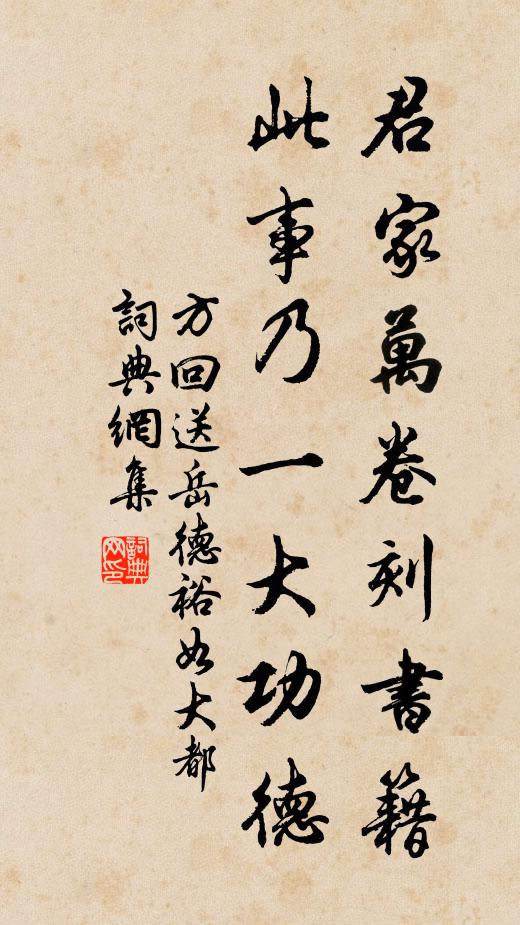 君家萬卷刻書籍
此事乃一大功德
方回送岳德裕如大都
詞典網集
詞典網印